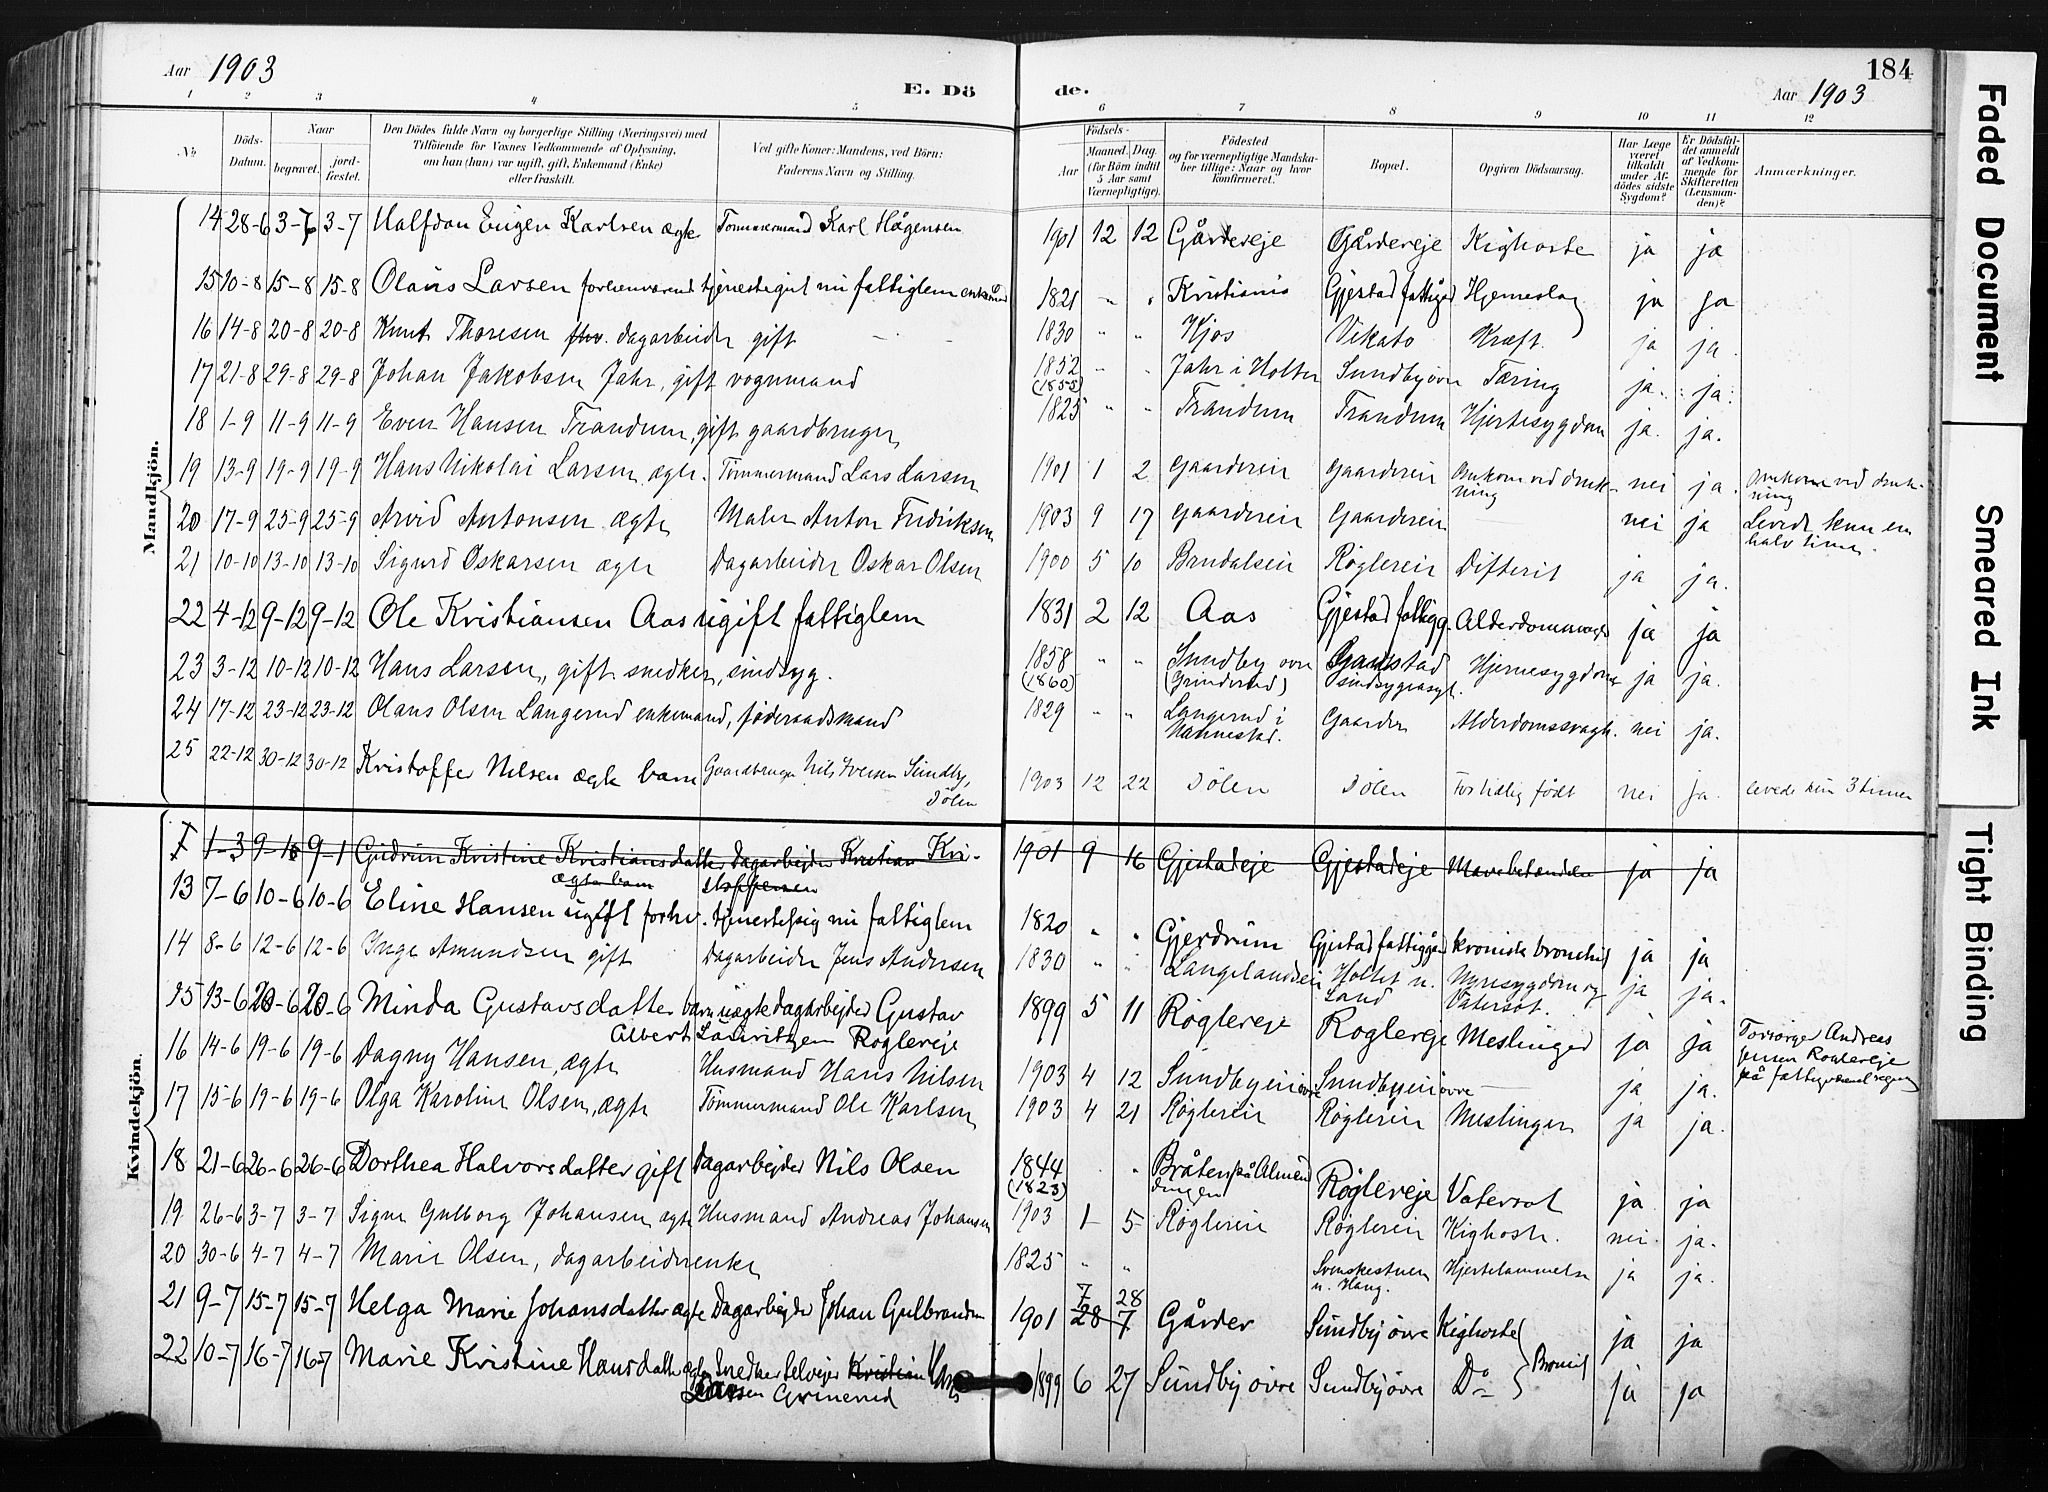 Aar 1903
E. Döde.
Aar 1903
184
1 2 3 4 5 6 7 8 9 10 11 12
No.
Döds-Datum.
Naar
begravet.
jord-fæstet.
Den Dödes fulde Navn og borgerlige Stilling (Næringsvei) med
Tilföiende for Voxnes Vedkommende af Oplysning,
om han (hun) var ugift, gift, Enkemand (Enke)
eller fraskilt.
Ved gifte Koner: Mandens, ved Börn:
Faderens Navn og Stilling.
Födsels-
Aar
Maaned. Dag.
(for Börn indtil
5 Aar samt
Værnepligtige).
Födested
og for værnepligtige Mandska-
ber tillige: Naar og hvor
konfirmeret.
Bopæl.
Opgiven Dödsaarsag.
Har Læge
været
tilkaldt
under Af-
dödes sidste
Sygdom?
Er Dödsfal-
det anmeldt
af Vedkom-
mende for
Skifteretten
(Lensman-
den)?
Anmærkninger.
Mandkjön.
14 28-6 3-7 3-7 Halfdan Eugen Karlsen ægte Tømmermand Karl Hågensen 1901 12 12 Gårdereje Gårdereje Kighoste ja ja
15 10-8 15-8 15-8 Olaus Larsen forhenværend tjenestegut nu fattiglem enkemand 1821 " " Kristiania Gjestad fattiggd Hjerneslag ja ja
16 14-8 20-8 20-8 Knut Thoresen fhv. dagarbeider gift 1830 " " Hjos Vikato Kræft. ja ja.
17 21-8 29-8 29-8 Johan Jakobsen Jahr, gift vognmand 1852 (1855) " " Jahr i Holter Sundby øvre Tæring ja. ja.
18 1-9 11-9 11-9 Even Hansen Trandum, gift gaardbruger 1825 " " Trandum Trandum Hjertesygdom ja. ja.
19 13-9 19-9 19-9 Hans Nikolai Larsen ægte. Tømmermand Lars Larsen 1901 1 2 Gaardereie Gaardereie Omkom ved drukning nei ja. Omkom ved drukning
20 17-9 25-9 25-9 Arvid Antonsen ægte Maler Anton Fredriksen 1903 9 17 Gaardereie Gaardereie nei ja Levede kun en halv time.
21 10-10 13-10 13-10 Sigurd Oskarsen ægte Dagarbeider Oskar Olsen 1900 5 10 Brudalseie Røglereie Difterit ja ja.
22 4-12 9-12 9-12 Ole Kristiansen Aas ugift fattiglem 1831 2 12 Aas Gjestad fattigg. Alderdomssvagh ja ja
23 3-12 10-12 10-12 Hans Larsen, gift snedker, sindsyg. 1858 (1860) " " Sundby øvre (Grinderud) Gaustad sindsygeasyl. Hjernesygdom ja ja.
24 17-12 23-12 23-12 Olaus Olsen Langerud enkemand, føderaadsmand 1829 " " Langerud i Nannestad. Gaarder Alderdomssvagh. nei ja.
25 22-12 30-12 30-12 Kristoffer Nilsen ægte barn Gaardbruger Nils Iversen Sundby, Dølen 1903 12 22 Dølen Dølen For tidlig født nei ja. Levede kun 3 timer
Kvindekjön.
1 1-3 9-1 9-1 Gudrun Kristine Kristiansdatter ægte barn Dagarbejder Kristian Kristoffersen 1901 9 16 Gjestadeje Gjestadeje Mavebetændelse ja ja
13 7-6 10-6 10-6 Eline Hansen ugift forhv. tjenestepig nu fattiglem 1820 " " Gjerdrum Gjestad fattiggård kronisk bronchit ja ja
14 8-6 12-6 12-6 Inge Amundsen gift Dagarbeider Jens Andersen 1830 " " Langelandseie Holtet u. Land Nyresygdom og Vatersot. ja ja.
15 13-6 20-6 20-6 Minda Gustavsdatter barn uægte dagarbejder Gustav Albert Lauritzen Røglereje 1899 5 11 Røglereje Røglereje Meslinger ja ja Forsørger Andreas Jensen Røglereje på fattigvæsenets regning
16 14-6 19-6 19-6 Dagny Hansen, ægte Husmand Hans Nilsen 1903 4 12 Sundbyeie øvre Sundbyeie øvre ja ja.
17 15-6 19-6 19-6 Olga Karoline Olsen, ægte Tømmermand Ole Karlsen 1903 4 21 Røglereie Røglereie Meslinger ja ja.
18 21-6 26-6 26-6 Dorthea Halvorsdatter gift Dagarbejder Nils Olsen 1844 (1823) " Bråten på Almendingen Røglereje Vatersot ja ja
19 26-6 3-7 3-7 Signe Gulborg Johansen ægte Husmand Andreas Johansen 1903 1 5 Røglereie Røglereie Kighoste. nei. ja.
20 30-6 4-7 4-7 Marie Olsen, dagarbeiderenke 1825 " " Svenskestuen u. Haug. Hjertelammelse ja ja.
21 9-7 15-7 15-7 Helga Marie Johansdatter ægte Dagarbejder Johan Gulbrandsen 1901 28 7 7 28 Gårder Sundby øvre Kighoste ja ja
22 10-7 16-7 16-7 Marie Kristine Hansdatter ægte Snedker Selvejer Kristian Hans Larsen Grinerud 1899 6 27 Sundby øvre Sundby øvre Do Bronkit ja ja
Faded Document
Smeared Ink
Tight Binding